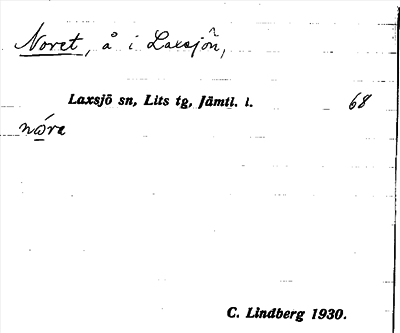 Noret, å i Laxsjön,
Laxsjö sn, Lits tg, Jämtl. l. 68
nǿra
C. Lindberg 1930.